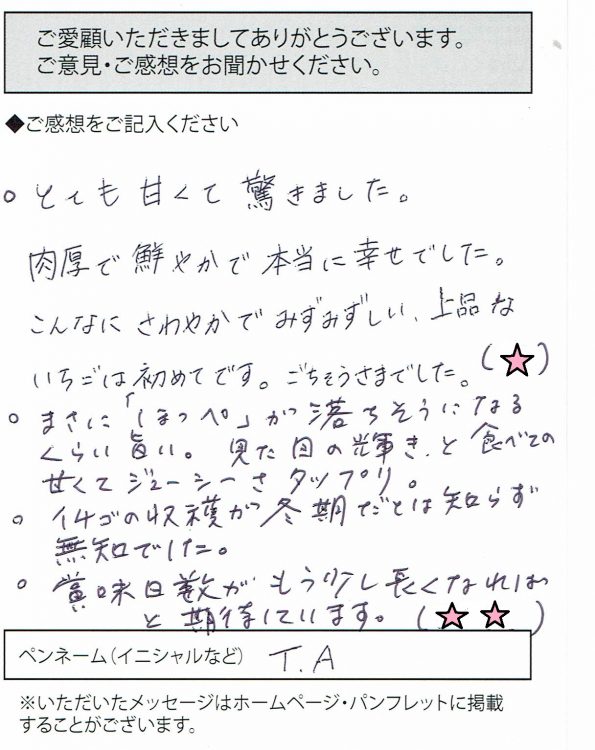 ご愛顧いただきましてありがとうございます。
ご意見・ご感想をお聞かせください。
◆ご感想をご記入ください
○とても甘くて驚きました。
肉厚で鮮やかで本当に幸せでした。
こんなにさわやかでみずみずしい、上品な
いちごは初めてです。ごちそうさまでした。(★)
○まさに「ほっぺ」が落ちそうになる
くらい旨い。見た目の輝きと食べての
甘くてジューシーさタップリ。
○イチゴの収穫が冬期だとは知らず
無知でした。
○賞味日数がもう少し長くなれば
と期待しています。(★★)
ペンネーム(イニシャルなど) T.A
※いただいたメッセージはホームページ・パンフレットに掲載
することがございます。